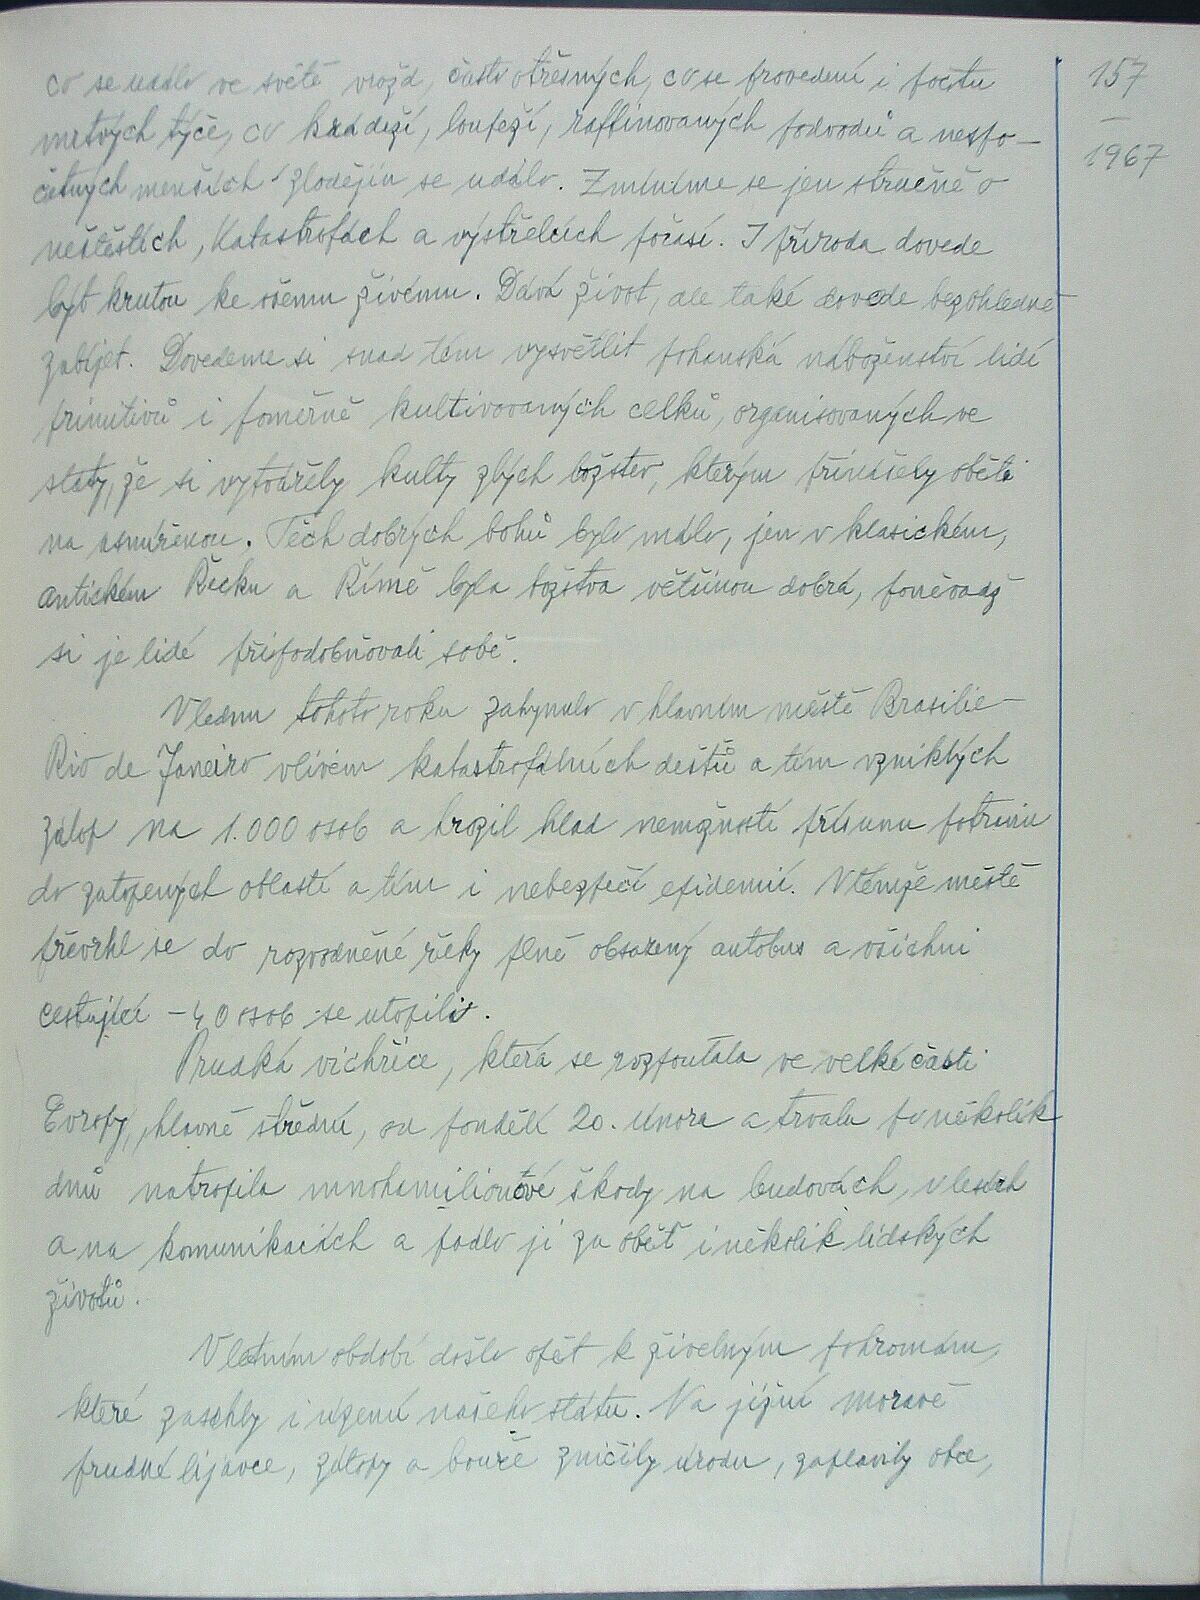 157
—
1967
co se událo ve světě vražd, často otřesných, co se provedení i počtu
mrtvých týče, co krádeží, loupeží, raffinovaných podvodů a nespo-
četných menších zlodějin se událo. Zmíníme se jen stručně o
neštěstích, katastrofách a výstřelcích počasí. I příroda dovede
být krutou ke všemu živému. Dává život, ale také dovede bezohledně
zabíjet. Dovedeme si snad tím vysvětlit pohanská náboženství lidí
primitivů i poměrně kultivovaných celků, organisovaných ve
státy, že si vytvářely kulty zlých božstev, kterým přinášely oběti
na usmířenou. Těch dobrých bohů bylo málo, jen v klasickém,
antickém Řecku a Římě byla božstva většinou dobrá, poněvadž
si je lidé připodobňovali sobě.
V lednu tohoto roku zahynulo v hlavním městě Brasilie -
Rio de Janeiro vlivem katastrofálních dešťů a tím vzniklých
záplop na 1.000 osob a hrozil hlad nemožností přísunu potravin
do zatopených oblastí a tím i nebezpečí epidemií. V témže městě
převrhl se do rozvodněné řeky plně obsazený autobus a všichni
cestující - 40 osob se utopili.
Prudká vichřice, která se rozpoutala ve velké části
Evropy, hlavně střední, od pondělí 20. února a trvala po několik
dnů natropila mnohamilionové škody na budovách, v lesích
a na komunikacích a padlo jí za oběť i několik lidských
životů.
V letním období došlo opět k živelným pohromám,
které zasáhly i území našeho státu. Na jižní Moravě
prudké lijavce, zátopy a bouře zničily úrodu, zaplavily obce,